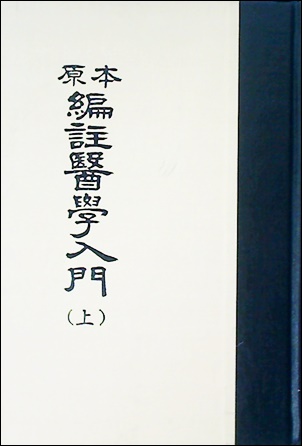 原本
編註醫學入門
(上)